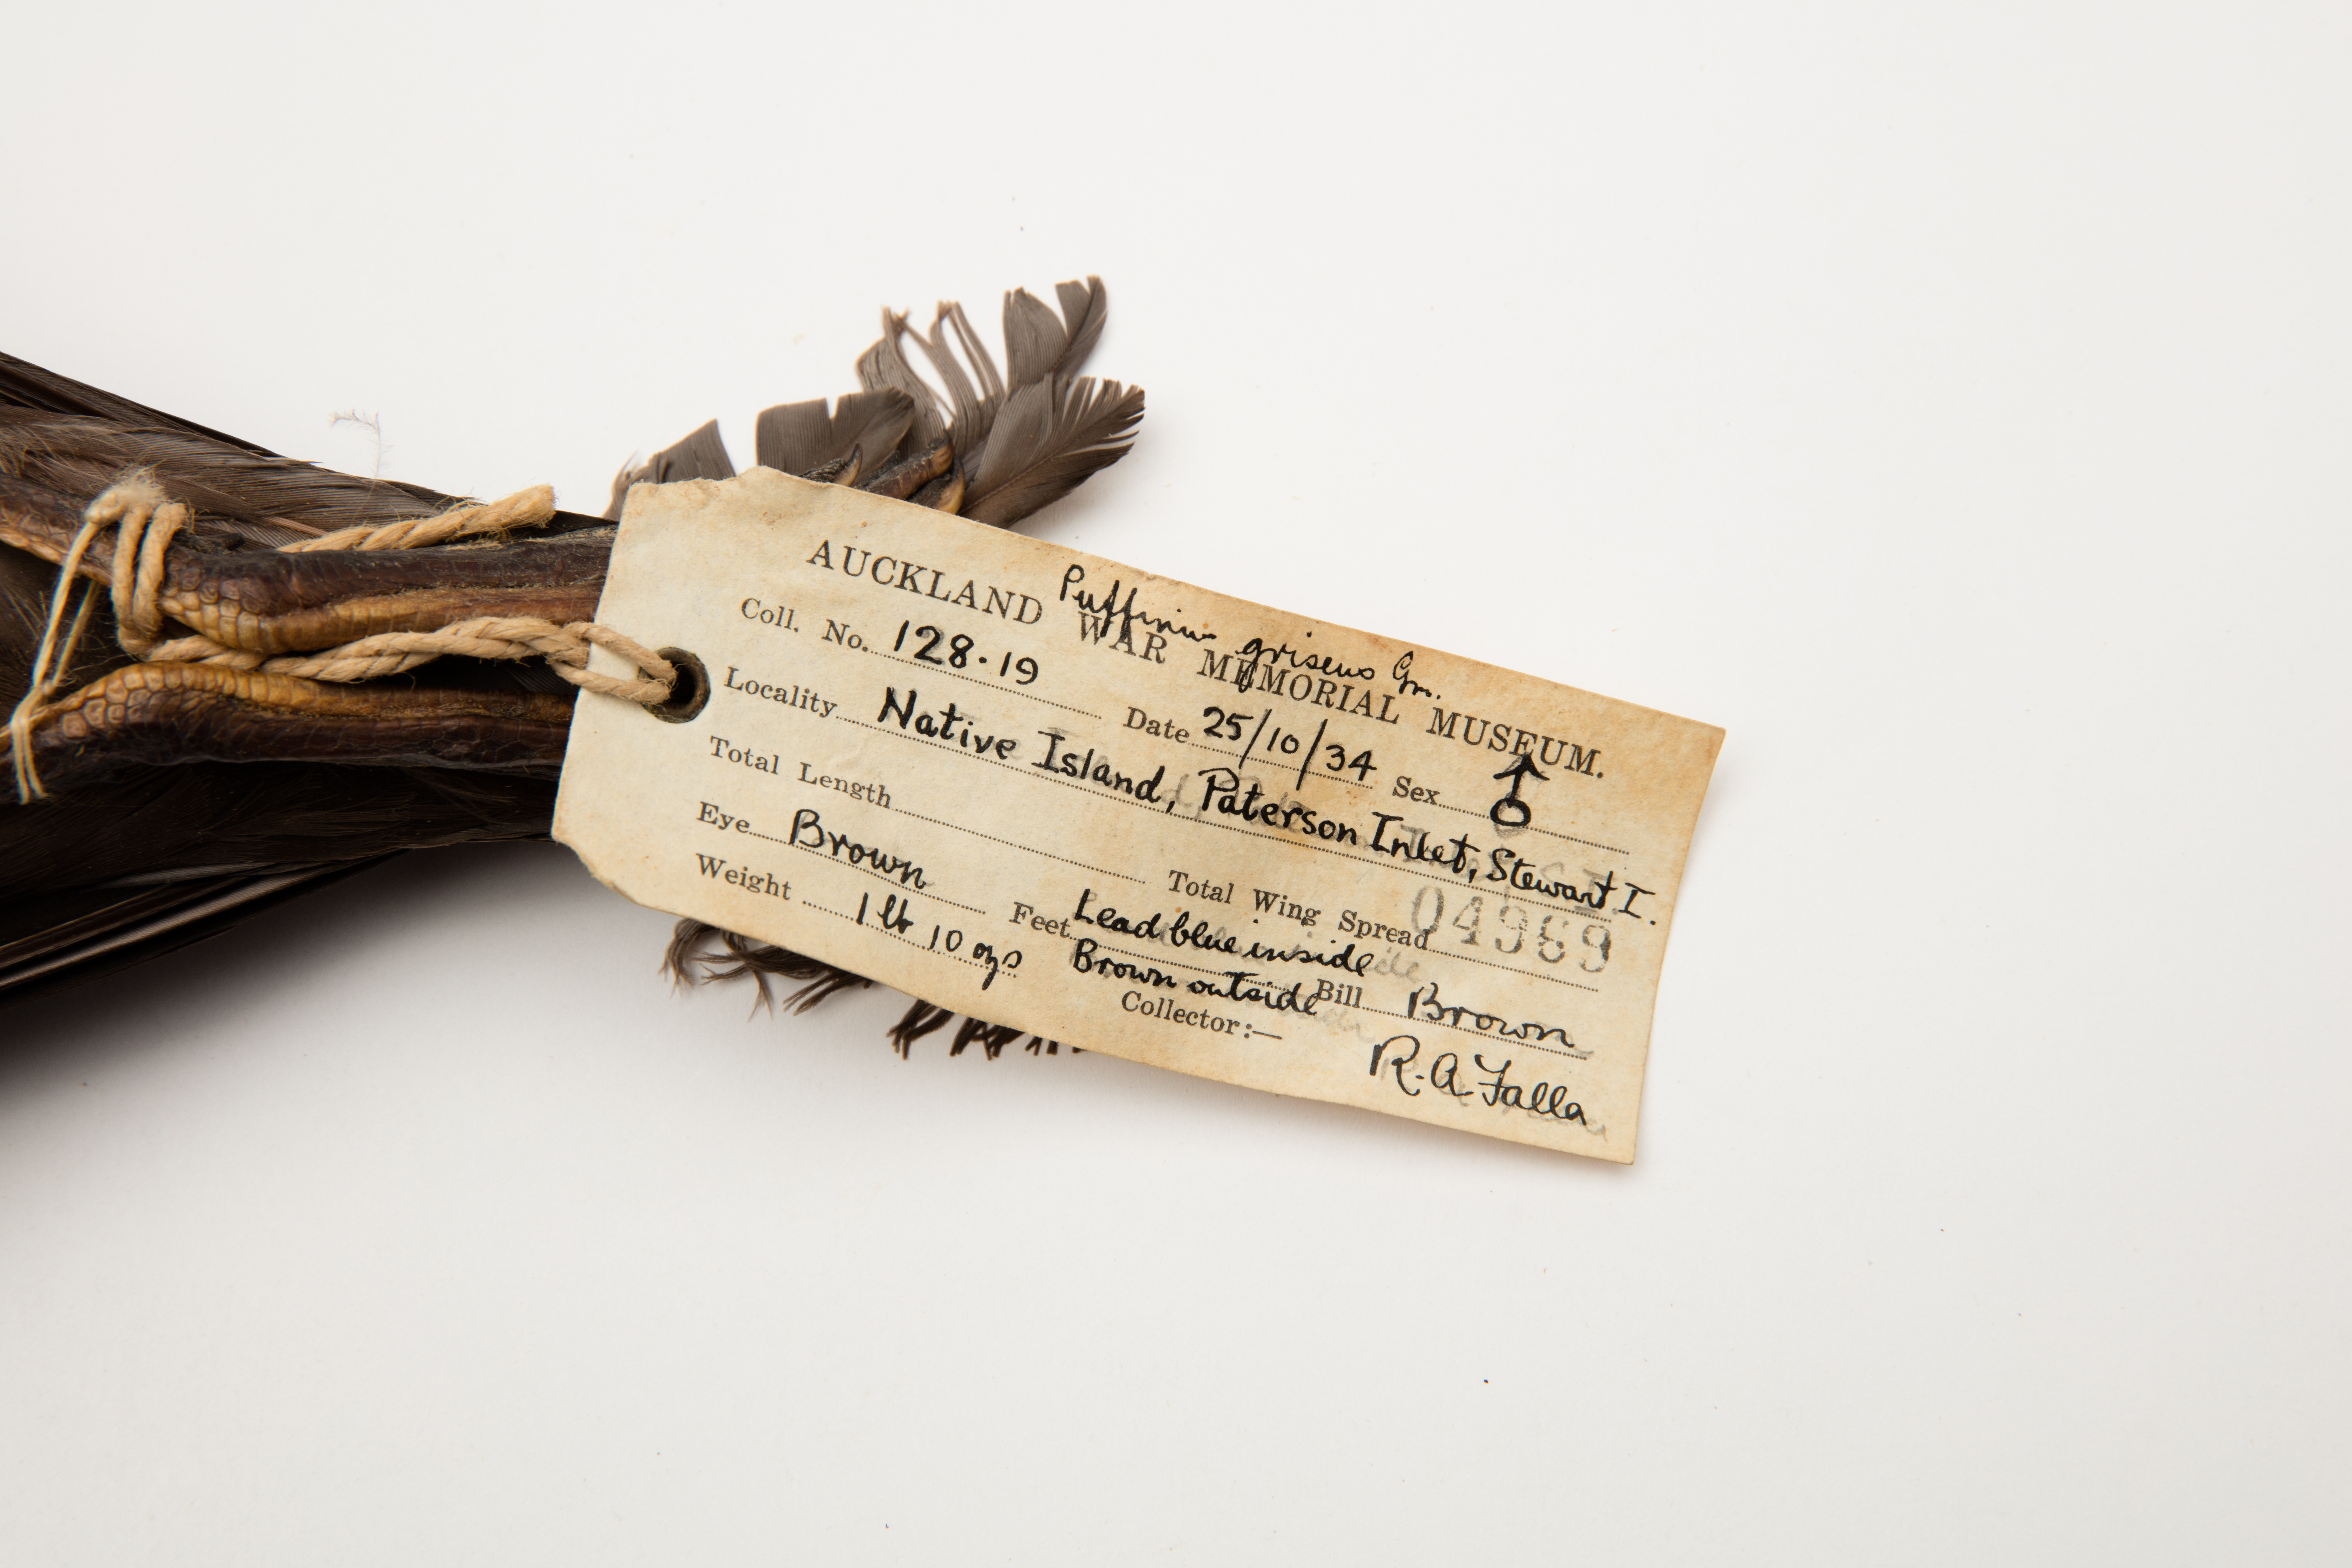 Puffinus griseus Gm.
AUCKLAND WAR MEMORIAL MUSEUM.
Coll. No. 128.19 Date 25/10/34 Sex ♂
Locality Native Island, Paterson Inlet, Stewart I.
Total Length Total Wing Spread
04989
Eye Brown Feet Lead blue inside
Brown outside Bill Brown
Weight 1 lb 10 ozs
Collector:— R.A. Falla